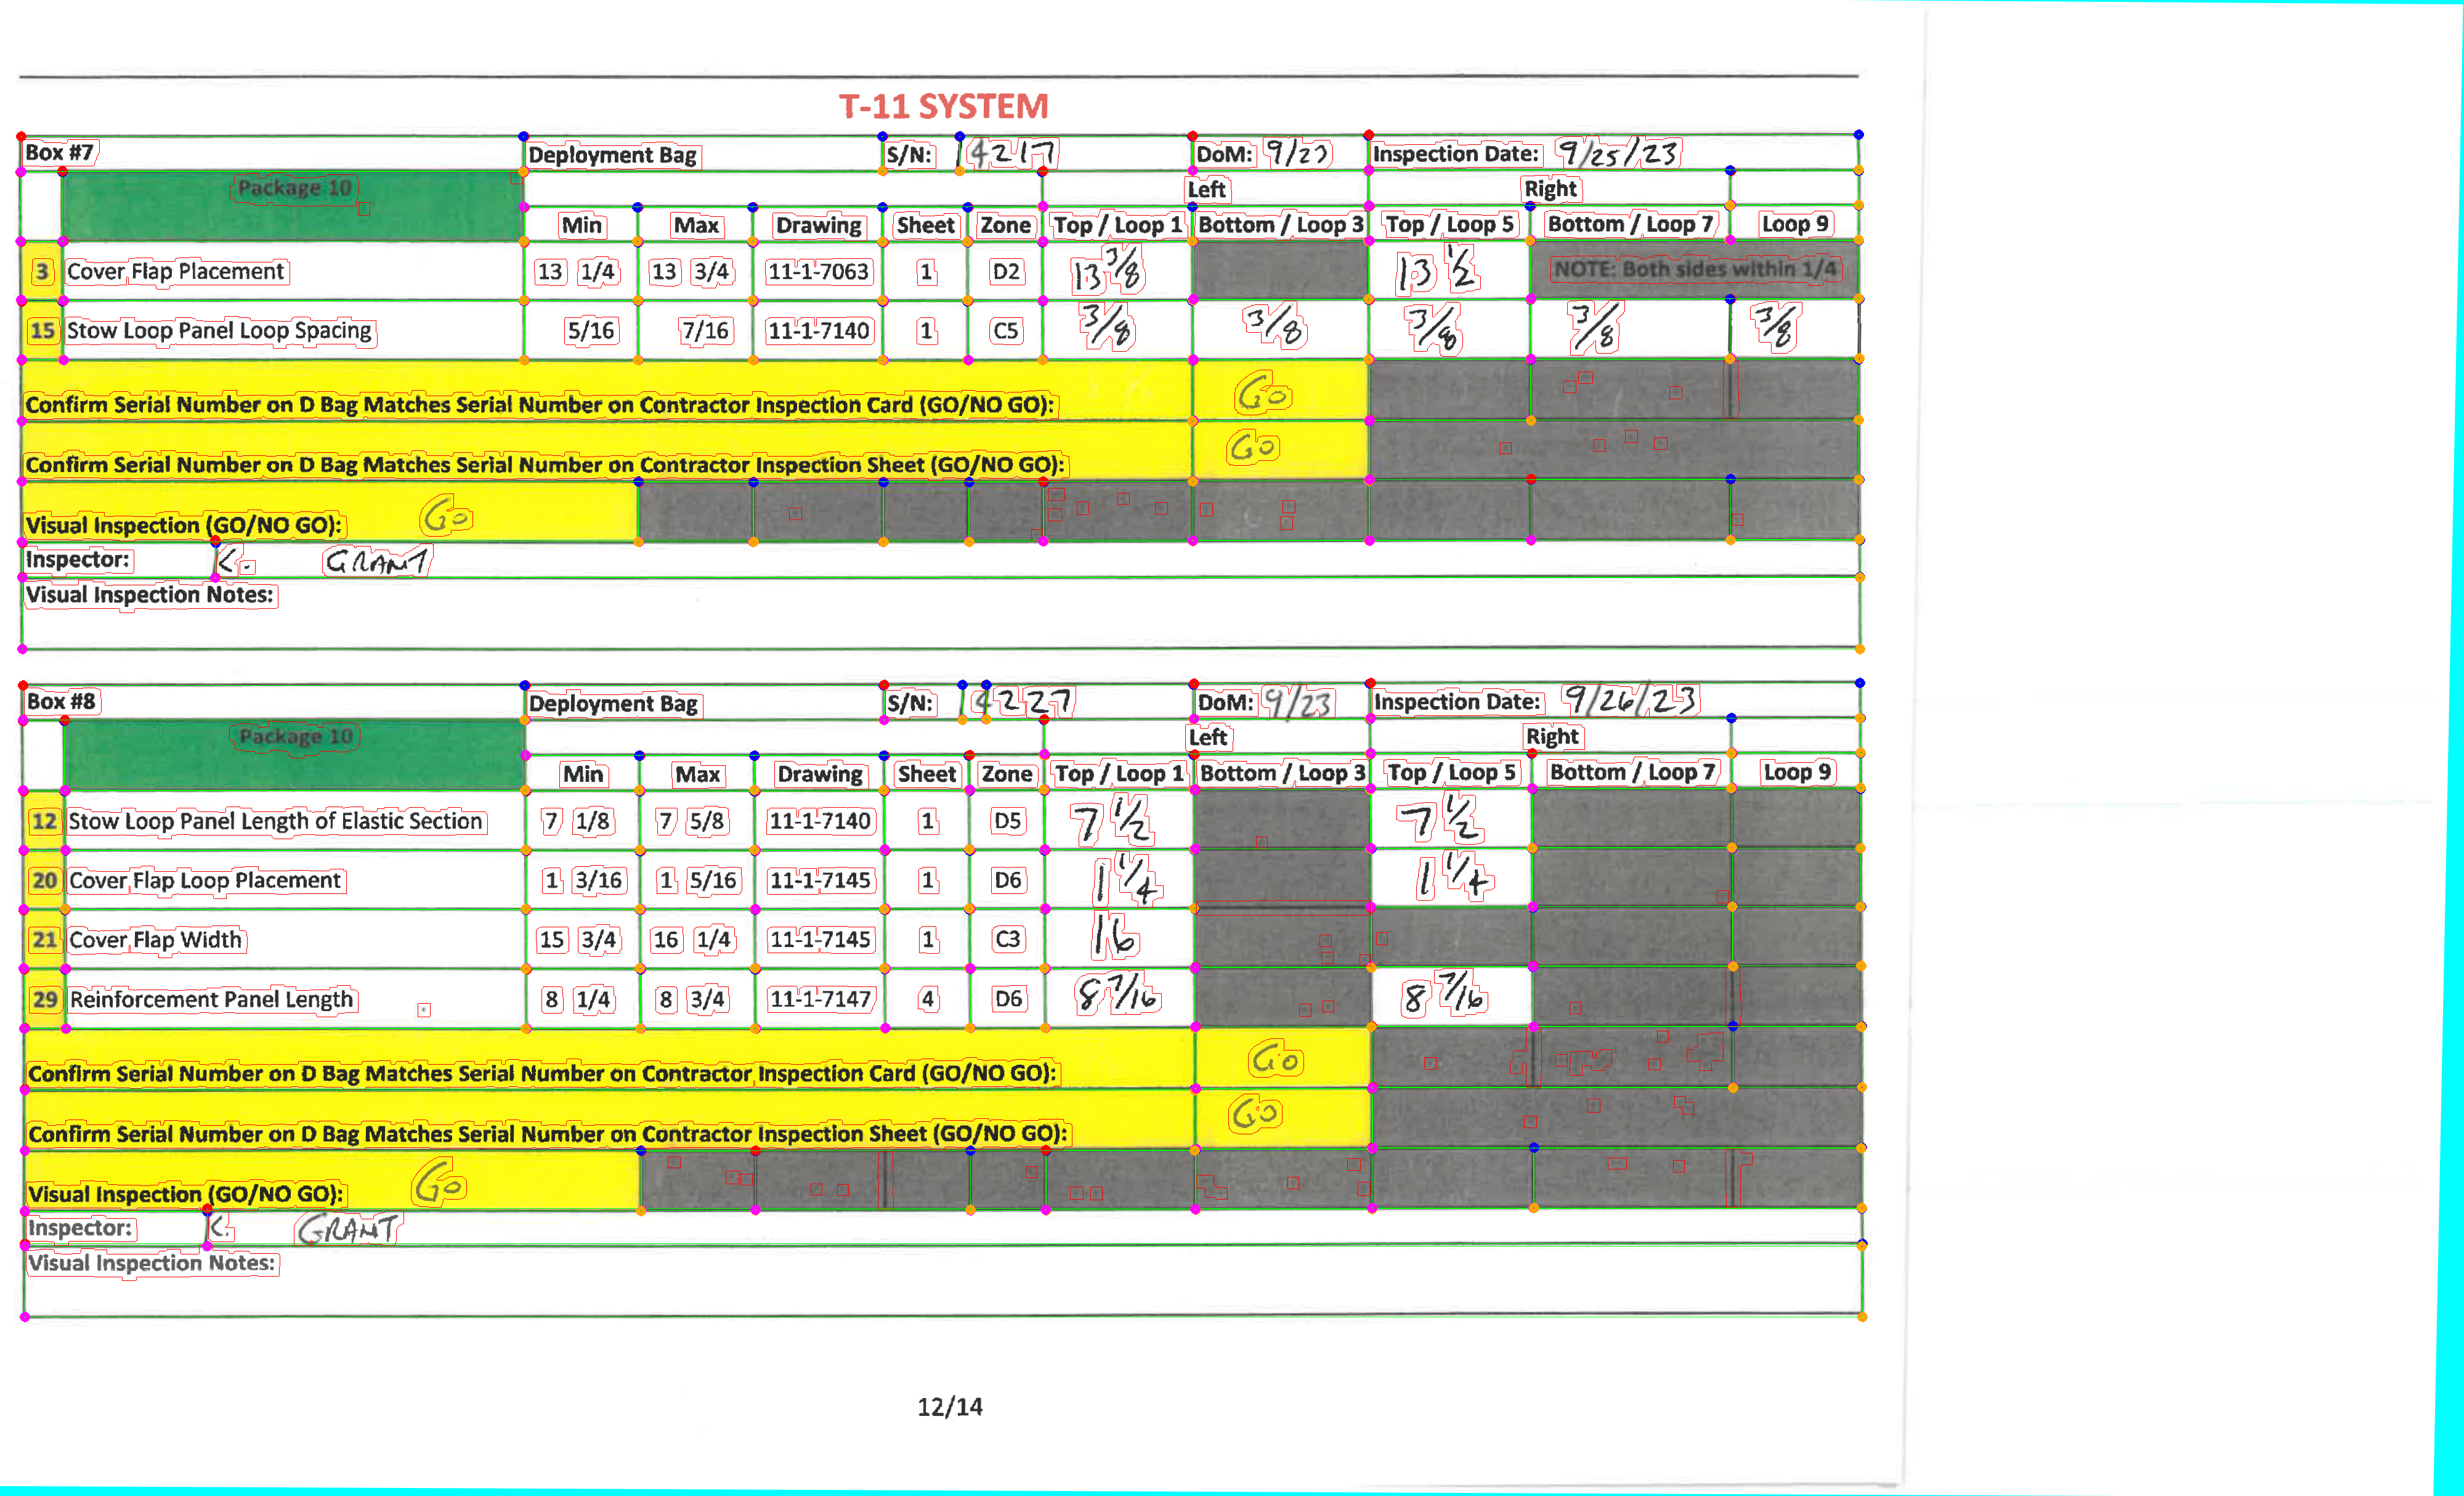 T-11 SYSTEM
Box #7 Deployment Bag S/N: 14217 DoM: 9/23 Inspection Date: 9/25/23
Package 10 Left Right
Min Max Drawing Sheet Zone Top / Loop 1 Bottom / Loop 3 Top / Loop 5 Bottom / Loop 7 Loop 9
3 Cover Flap Placement 13 1/4 13 3/4 11-1-7063 1 D2 13 3/8 13 1/2 NOTE: Both sides within 1/4
15 Stow Loop Panel Loop Spacing 5/16 7/16 11-1-7140 1 C5 3/8 3/8 3/8 3/8 3/8
Confirm Serial Number on D Bag Matches Serial Number on Contractor Inspection Card (GO/NO GO): GO
Confirm Serial Number on D Bag Matches Serial Number on Contractor Inspection Sheet (GO/NO GO): GO
Visual Inspection (GO/NO GO): GO
Inspector: K. GRANT
Visual Inspection Notes:
Box #8 Deployment Bag S/N: 14227 DoM: 9/23 Inspection Date: 9/26/23
Package 10 Left Right
Min Max Drawing Sheet Zone Top / Loop 1 Bottom / Loop 3 Top / Loop 5 Bottom / Loop 7 Loop 9
12 Stow Loop Panel Length of Elastic Section 7 1/8 7 5/8 11-1-7140 1 D5 7 1/2 7 1/2
20 Cover Flap Loop Placement 1 3/16 1 5/16 11-1-7145 1 D6 1 1/4 1 1/4
21 Cover Flap Width 15 3/4 16 1/4 11-1-7145 1 C3 16
29 Reinforcement Panel Length 8 1/4 8 3/4 11-1-7147 4 D6 8 7/16 8 7/16
Confirm Serial Number on D Bag Matches Serial Number on Contractor Inspection Card (GO/NO GO): GO
Confirm Serial Number on D Bag Matches Serial Number on Contractor Inspection Sheet (GO/NO GO): GO
Visual Inspection (GO/NO GO): GO
Inspector: K. GRANT
Visual Inspection Notes:
12/14